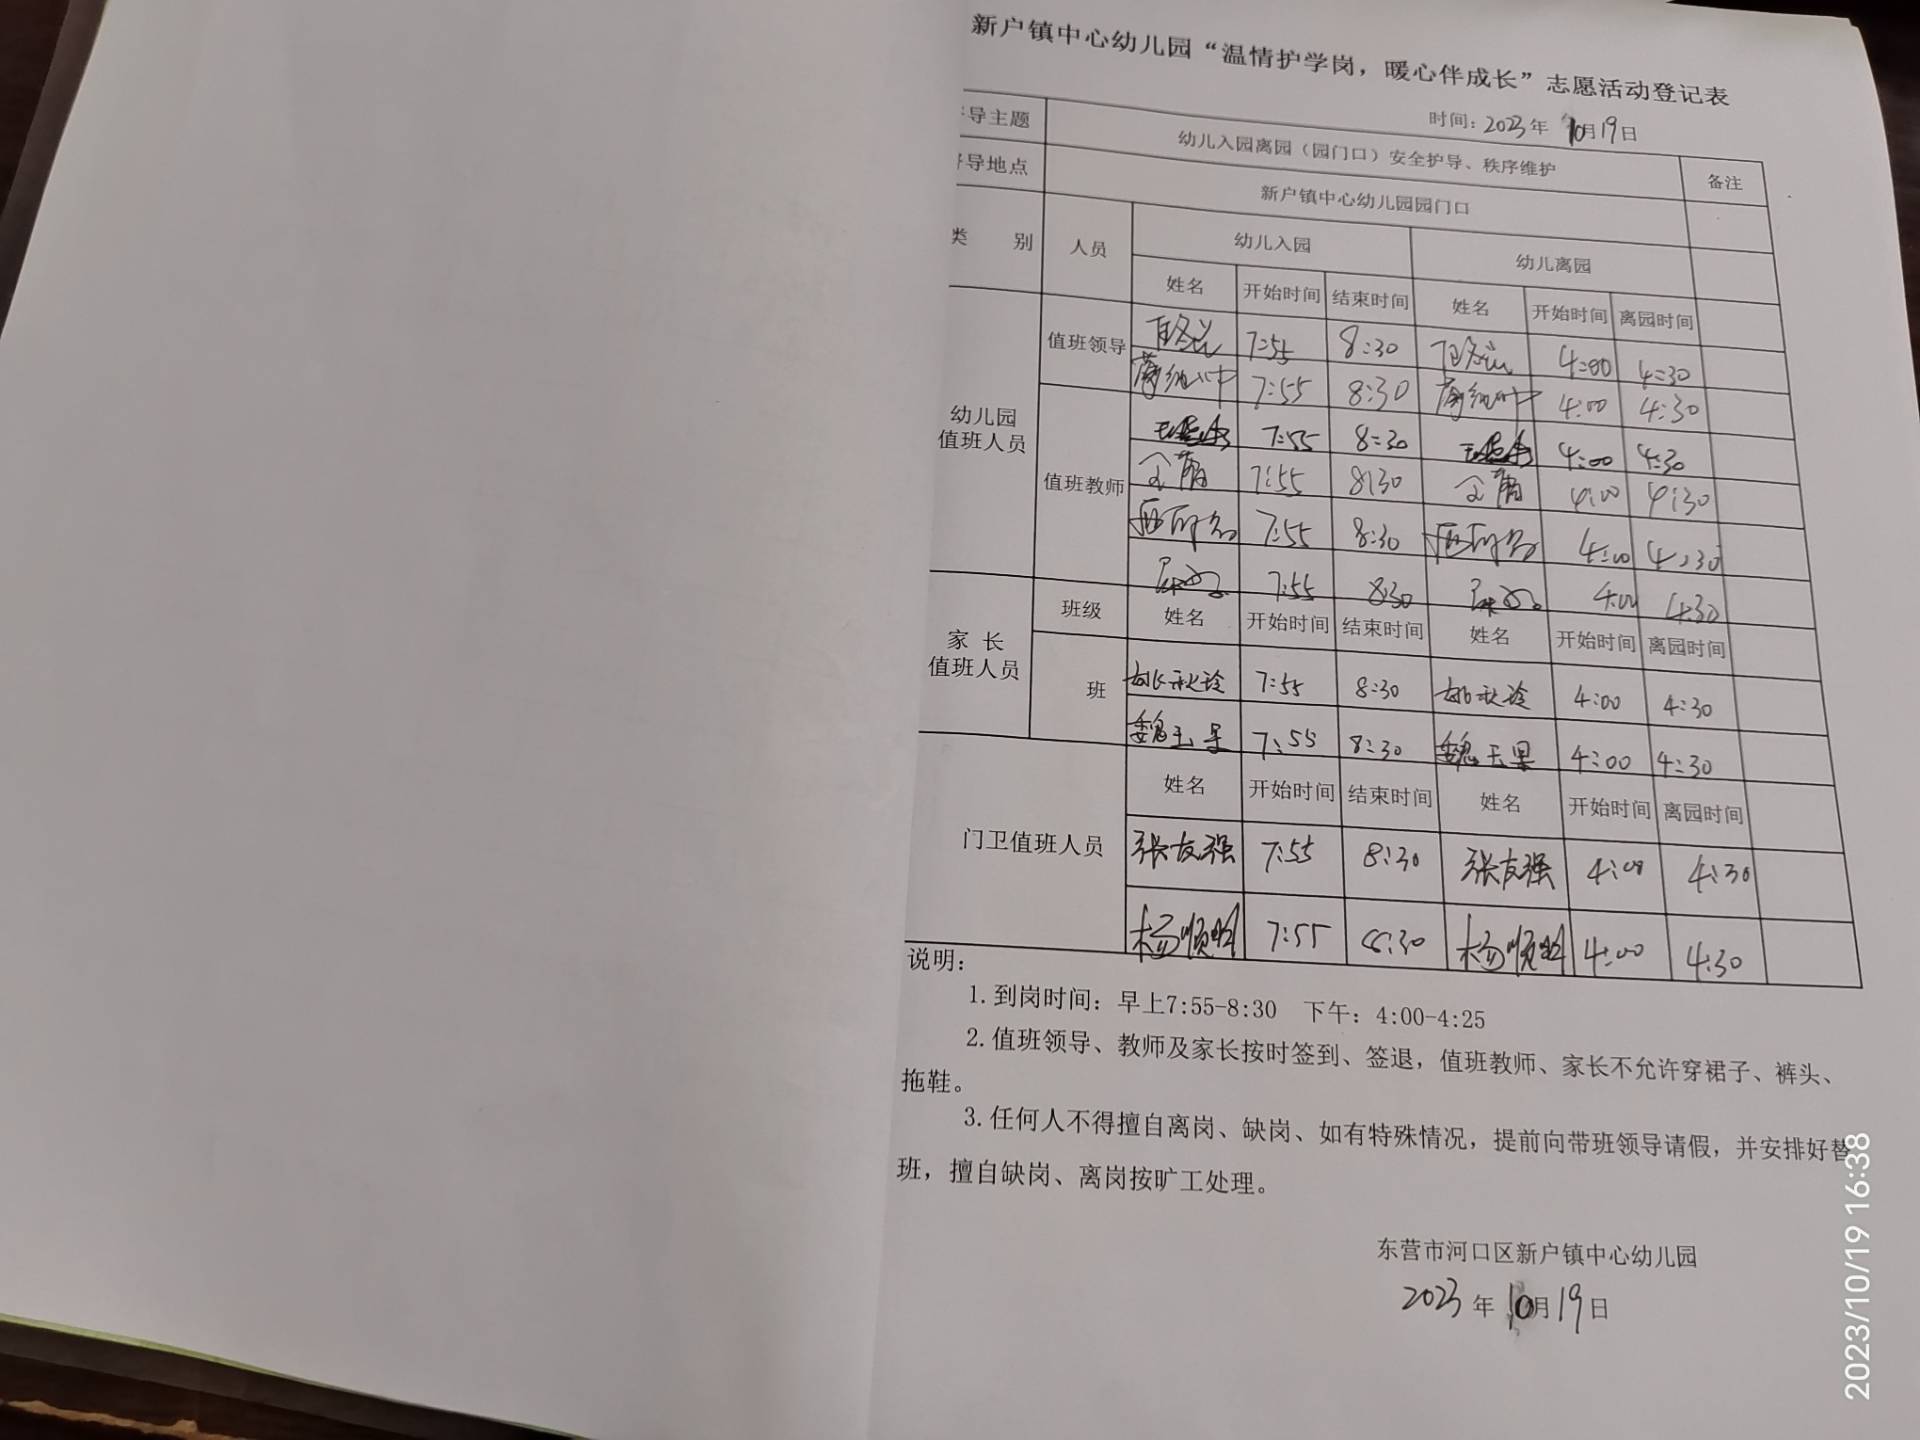 新户镇中心幼儿园“温情护学岗，暖心伴成长”志愿活动登记表
时间：2023年 10月19日
导主题 幼儿入园离园（园门口）安全护导、秩序维护 备注
导地点 新户镇中心幼儿园园门口
类 别 人员 幼儿入园 幼儿离园
姓名 开始时间 结束时间 姓名 开始时间 离园时间
幼儿园值班人员 值班领导 7:55 8:30 4:00 4:30
7:55 8:30 4:00 4:30
值班教师 7:55 8:30 4:00 4:30
7:55 8:30 4:00 4:30
7:55 8:30 4:00 4:30
7:55 8:30 4:00 4:30
家 长 值班人员 班级 姓名 开始时间 结束时间 姓名 开始时间 离园时间
班 姚秋玲 7:55 8:30 姚秋玲 4:00 4:30
魏玉果 7:55 8:30 魏玉果 4:00 4:30
门卫值班人员 姓名 开始时间 结束时间 姓名 开始时间 离园时间
张友强 7:55 8:30 张友强 4:00 4:30
杨顺明 7:55 8:30 杨顺明 4:00 4:30
说明：
1.到岗时间：早上7:55-8:30 下午：4:00-4:25
2.值班领导、教师及家长按时签到、签退，值班教师、家长不允许穿裙子、裤头、
拖鞋。
3.任何人不得擅自离岗、缺岗、如有特殊情况，提前向带班领导请假，并安排好替
班，擅自缺岗、离岗按旷工处理。
东营市河口区新户镇中心幼儿园
2023年 10月19日
2023/10/19 16:38